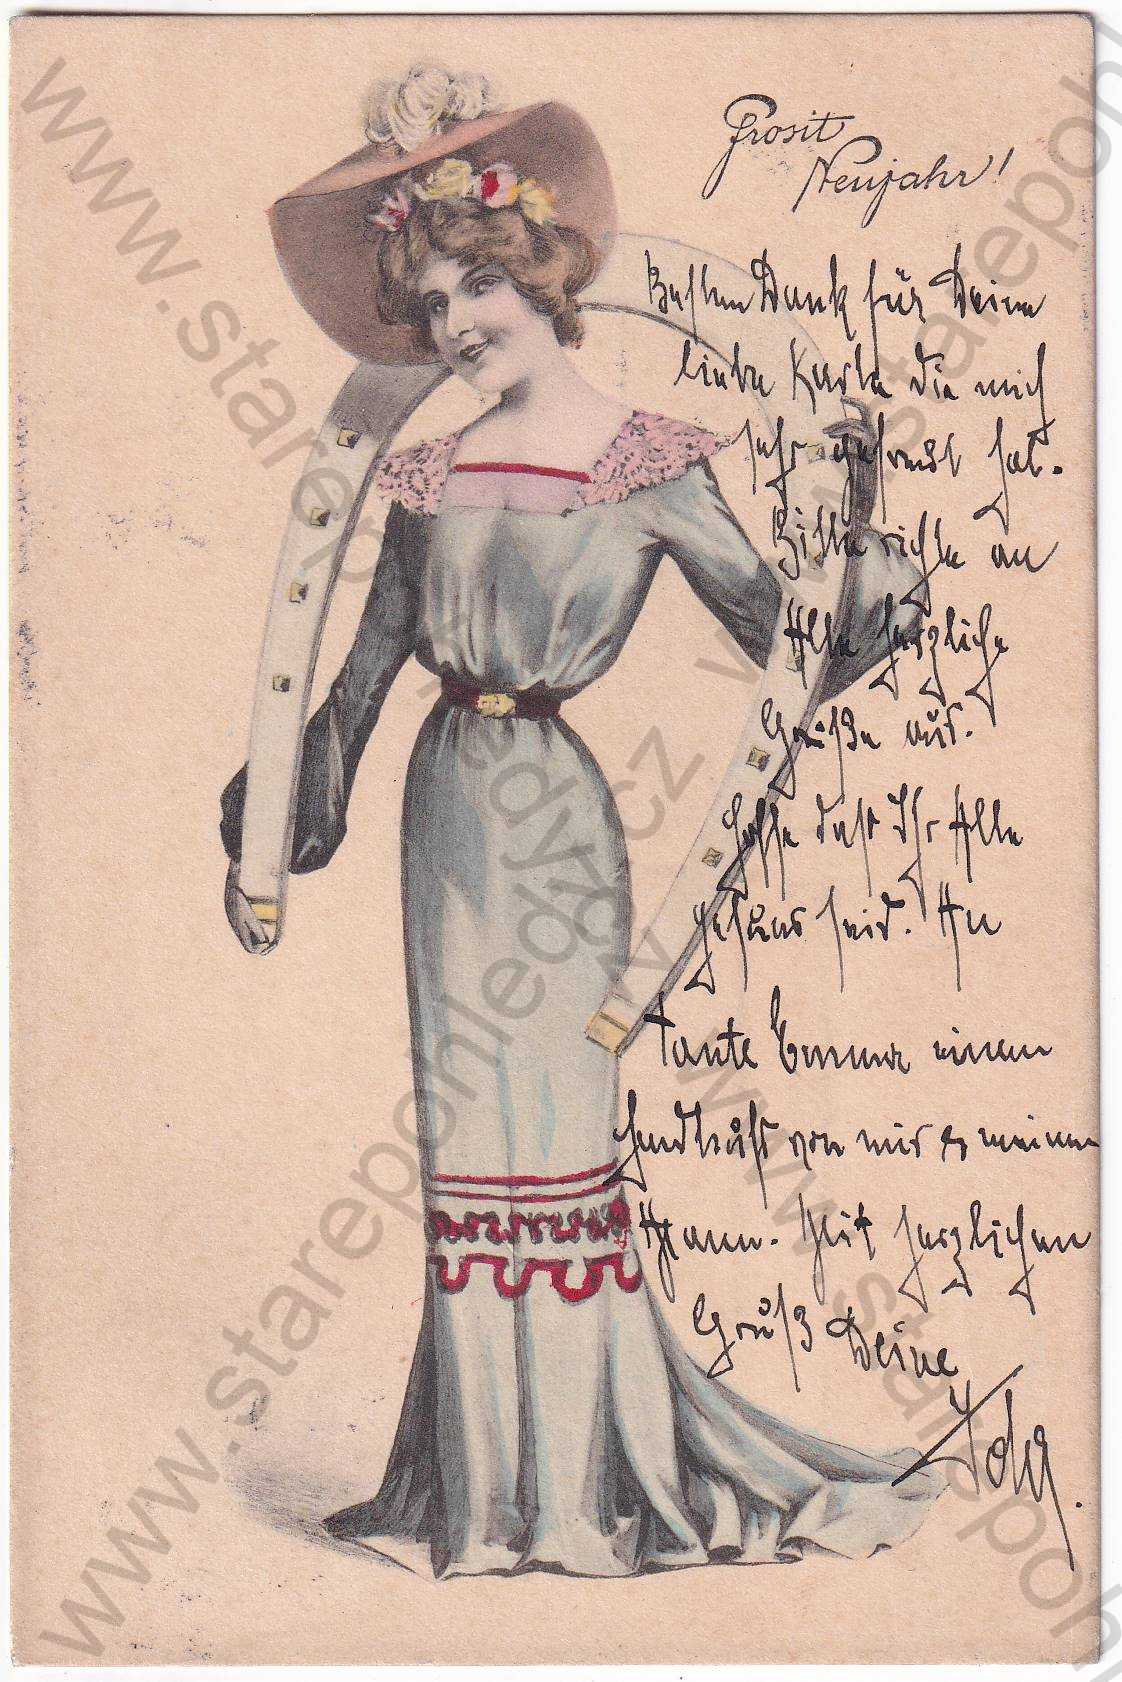 Prosit
Neujahr!
Besten Dank für Deine
liebe Karte die mich
sehr gefreut hat.
Bitte richte an
Alle herzliche
Grüße aus.
Hoffe daß Ihr Alle
gesund seid. An
Tante Emma einen
Handkuß von mir & meinem
Mann. Mit herzlichen
Gruß Deine
www.starepohledy.cz
www.starepohledy.cz